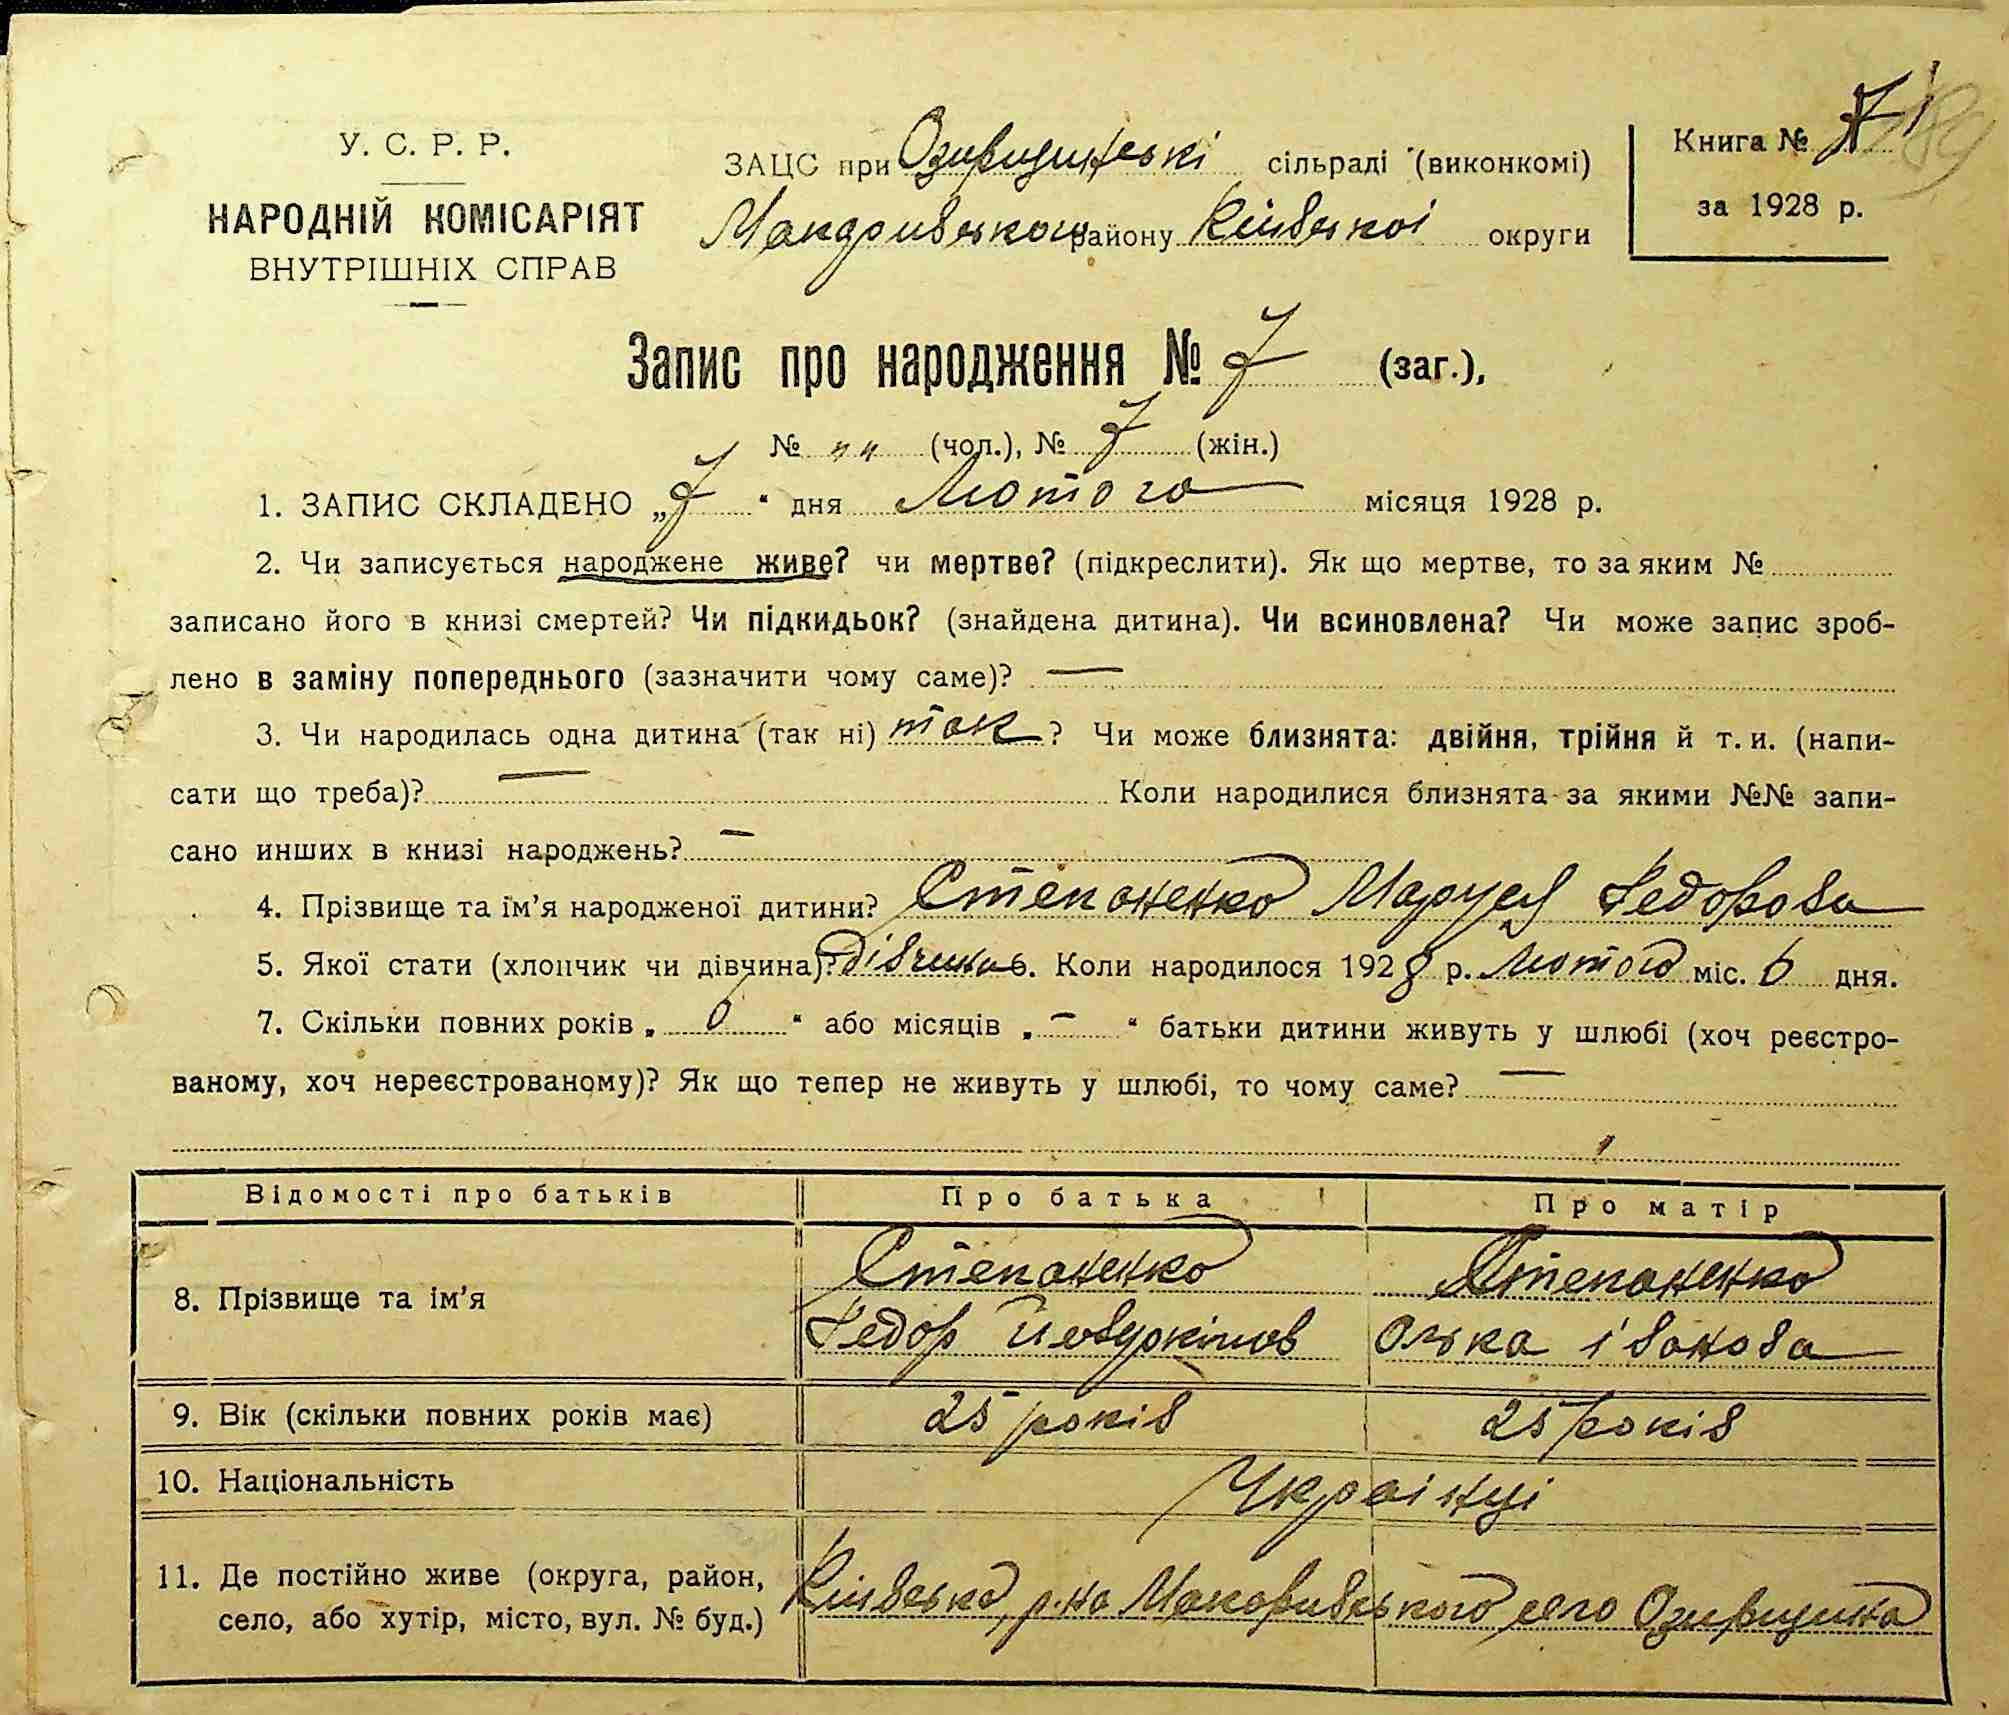 У. С. Р. Р.
НАРОДНІЙ КОМІСАРІЯТ
ВНУТРІШНІХ СПРАВ
ЗАЦС при Озирщинські сільраді (виконкомі)
району Київської округи
Книга №
за 1928 р.
Запис про народження № 7 (заг.),
№ „ „ (чол.), № 7 (жін.)
1. ЗАПИС СКЛАДЕНО „7“ дня Лютого місяця 1928 р.
2. Чи записується народжене живе? чи мертве? (підкреслити). Як що мертве, то за яким №
записано його в книзі смертей? Чи підкидьок? (знайдена дитина). Чи всиновлена? Чи може запис зроб-
лено в заміну попереднього (зазначити чому саме)? —
3. Чи народилась одна дитина (так ні) так? Чи може близнята: двійня, трійня й т. и. (напи-
сати що треба)? — Коли народилися близнята за якими №№ запи-
сано инших в книзі народжень? —
4. Прізвище та ім'я народженої дитини? Степаненко Маруся Федорова
5. Якої стати (хлопчик чи дівчина)? дівчина 6. Коли народилося 1928 р. Лютого міс. 6 дня.
7. Скільки повних років „ 0 “ або місяців „ — “ батьки дитини живуть у шлюбі (хоч реєстро-
ваному, хоч нереєстрованому)? Як що тепер не живуть у шлюбі, то чому саме? —
Відомості про батьків Про батька Про матір
8. Прізвище та ім'я Степаненко Степаненко
Федор Олька Іванова
9. Вік (скільки повних років має) 25 років 25 років
10. Національність Українці
11. Де постійно живе (округа, район, Київська, р-на Макарівського село Озирщина
село, або хутір, місто, вул. № буд.)